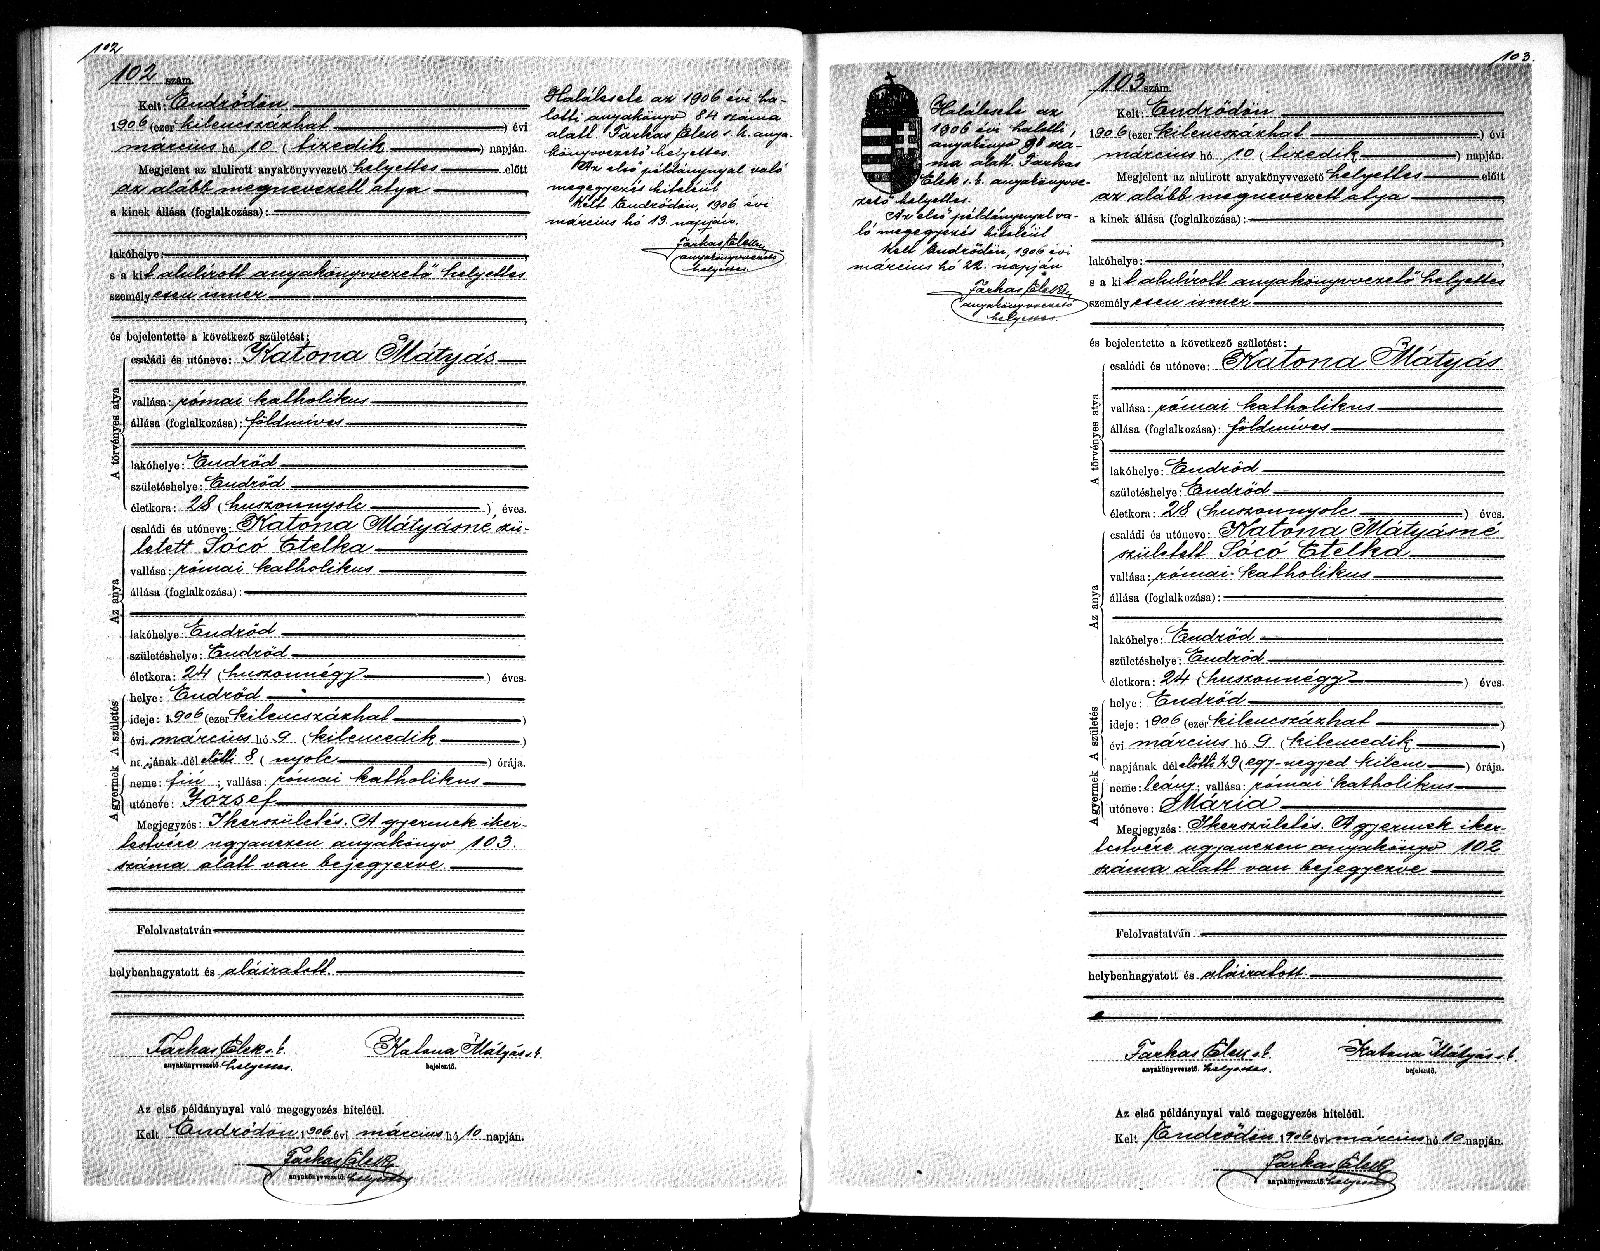 102
102 szám.
Kelt: Endrődön
1906 (ezer kilencszázhat) évi
március hó 10 (tizedik) napján.
Megjelent az alulirott anyakönyvvezető helyettes előtt
az alább megnevezett atya
a kinek állása (foglalkozása):
lakóhelye:
s a kit alulírott anyakönyvvezető helyettes
személyesen ismer
és bejelentette a következő születést:
A törvényes atya
családi és utóneve: Katona Mátyás
vallása: római katholikus
állása (foglalkozása): földmíves
lakóhelye: Endrőd
születéshelye: Endrőd
életkora: 28 (huszonnyolc) éves.
Az anya
családi és utóneve: Katona Mátyásné szü-
letett Sócó Etelka
vallása: római katholikus
állása (foglalkozása):
lakóhelye: Endrőd
születéshelye: Endrőd
életkora: 24 (huszonnégy) éves.
A születés
helye: Endrőd
ideje: 1906 (ezer kilencszázhat)
évi március hó 9 (kilencedik)
napjának dél előtti 8 (nyolc) órája.
A gyermek
neme: fiú; vallása: római katholikus
utóneve: József
Megjegyzés: Ikerszületés. A gyermek iker-
testvére ugyanezen anyakönyv 103
száma alatt van bejegyezve
Felolvastatván
helybenhagyatott és aláiratott.
Farkas Elek s. k. Katona Mátyás s. k.
anyakönyvvezető helyettes. bejelentő.
Az első példánynyal való megegyezés hiteléül.
Kelt Endrődön 1906 évi március hó 10 napján.
Farkas Elek
anyakönyvvezető helyettes
Halálesete az 1906 évi ha-
lotti anyakönyv 84 száma
alatt. Farkas Elek s. k. anya-
könyvvezető helyettes.
Az első példánynyal való
megegyezés hiteléül
Kelt Endrődön, 1906 évi
március hó 13. napján.
Farkas Elek
anyakönyvvezető
helyettes
103.
Halálesete az
1906 évi halotti
anyakönyv 98 szá-
ma alatt. Farkas
Elek s. k. anyakönyvve-
zető helyettes.
Az első példánynyal va-
ló megegyezés hiteléül
Kelt Endrődön, 1906 évi
március hó 22. napján
Farkas Elek
anyakönyvvezető
helyettes.
103 szám.
Kelt: Endrődön
1906 (ezer kilencszázhat) évi
március hó 10 (tizedik) napján.
Megjelent az alulirott anyakönyvvezető helyettes előtt
az alább megnevezett atya
a kinek állása (foglalkozása):
lakóhelye:
s a kit alulírott anyakönyvvezető helyettes
személyesen ismer
és bejelentette a következő születést:
A törvényes atya
családi és utóneve: Katona Mátyás
vallása: római katholikus
állása (foglalkozása): földmíves
lakóhelye: Endrőd
születéshelye: Endrőd
életkora: 28 (huszonnyolc) éves.
Az anya
családi és utóneve: Katona Mátyásné
született Sócó Etelka
vallása: római katholikus
állása (foglalkozása):
lakóhelye: Endrőd
születéshelye: Endrőd
életkora: 24 (huszonnégy) éves.
A születés
helye: Endrőd
ideje: 1906 (ezer kilencszázhat)
évi március hó 9 (kilencedik)
napjának dél előtti ¼9 (egy-negyed kilenc) órája.
A gyermek
neme: leány; vallása: római katholikus
utóneve: Mária
Megjegyzés: Ikerszületés. A gyermek iker-
testvére ugyanezen anyakönyv 102
száma alatt van bejegyezve
Felolvastatván
helybenhagyatott és aláiratott.
Farkas Elek s. k. Katona Mátyás s. k.
anyakönyvvezető helyettes. bejelentő.
Az első példánynyal való megegyezés hiteléül.
Kelt Endrődön 1906 évi március hó 10 napján.
Farkas Elek
anyakönyvvezető helyettes